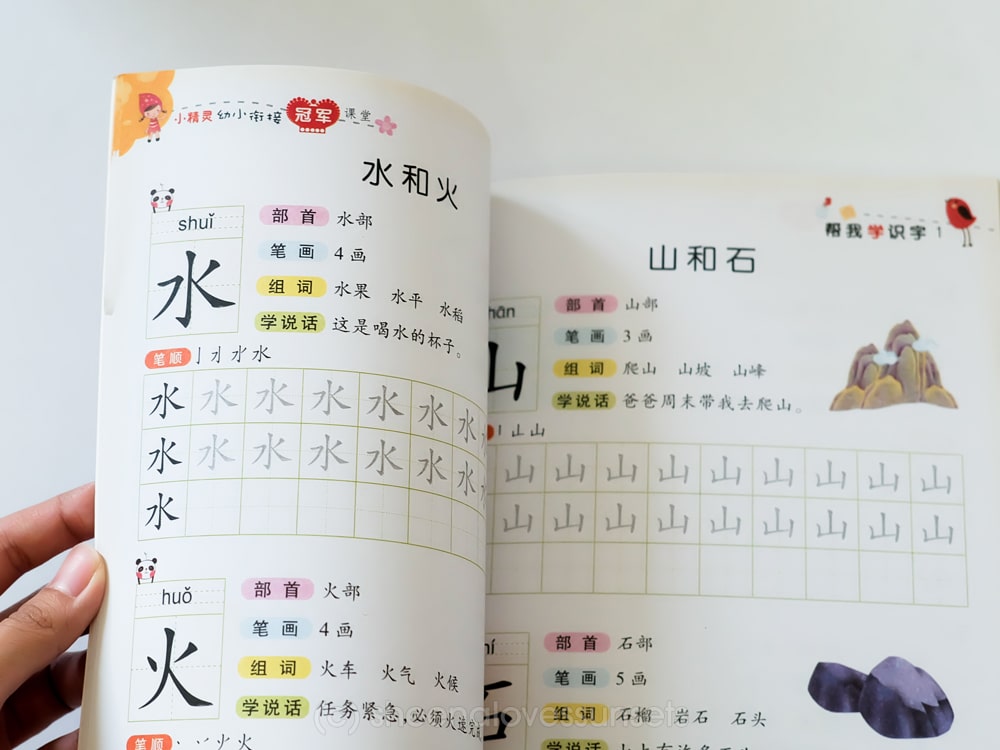 小精灵 幼小衔接 冠军 课堂
水和火
shuǐ
水
部首 水部
笔画 4画
组词 水果 水平 水稻
学说话 这是喝水的杯子。
笔顺 亅 水
水 水 水 水 水 水 水
水 水 水 水 水 水 水
水
huǒ
火
部首 火部
笔画 4画
组词 火车 火气 火候
学说话 任务紧急,必须火速完
笔顺 丶 丷 火 火
帮我学识字 1
山和石
hān
山
部首 山部
笔画 3画
组词 爬山 山坡 山峰
学说话 爸爸周末带我去爬山。
丨 山 山
山 山 山 山 山 山 山 山 山
山 山 山 山 山 山 山 山 山
hí
石
部首 石部
笔画 5画
组词 石榴 岩石 石头
学说话